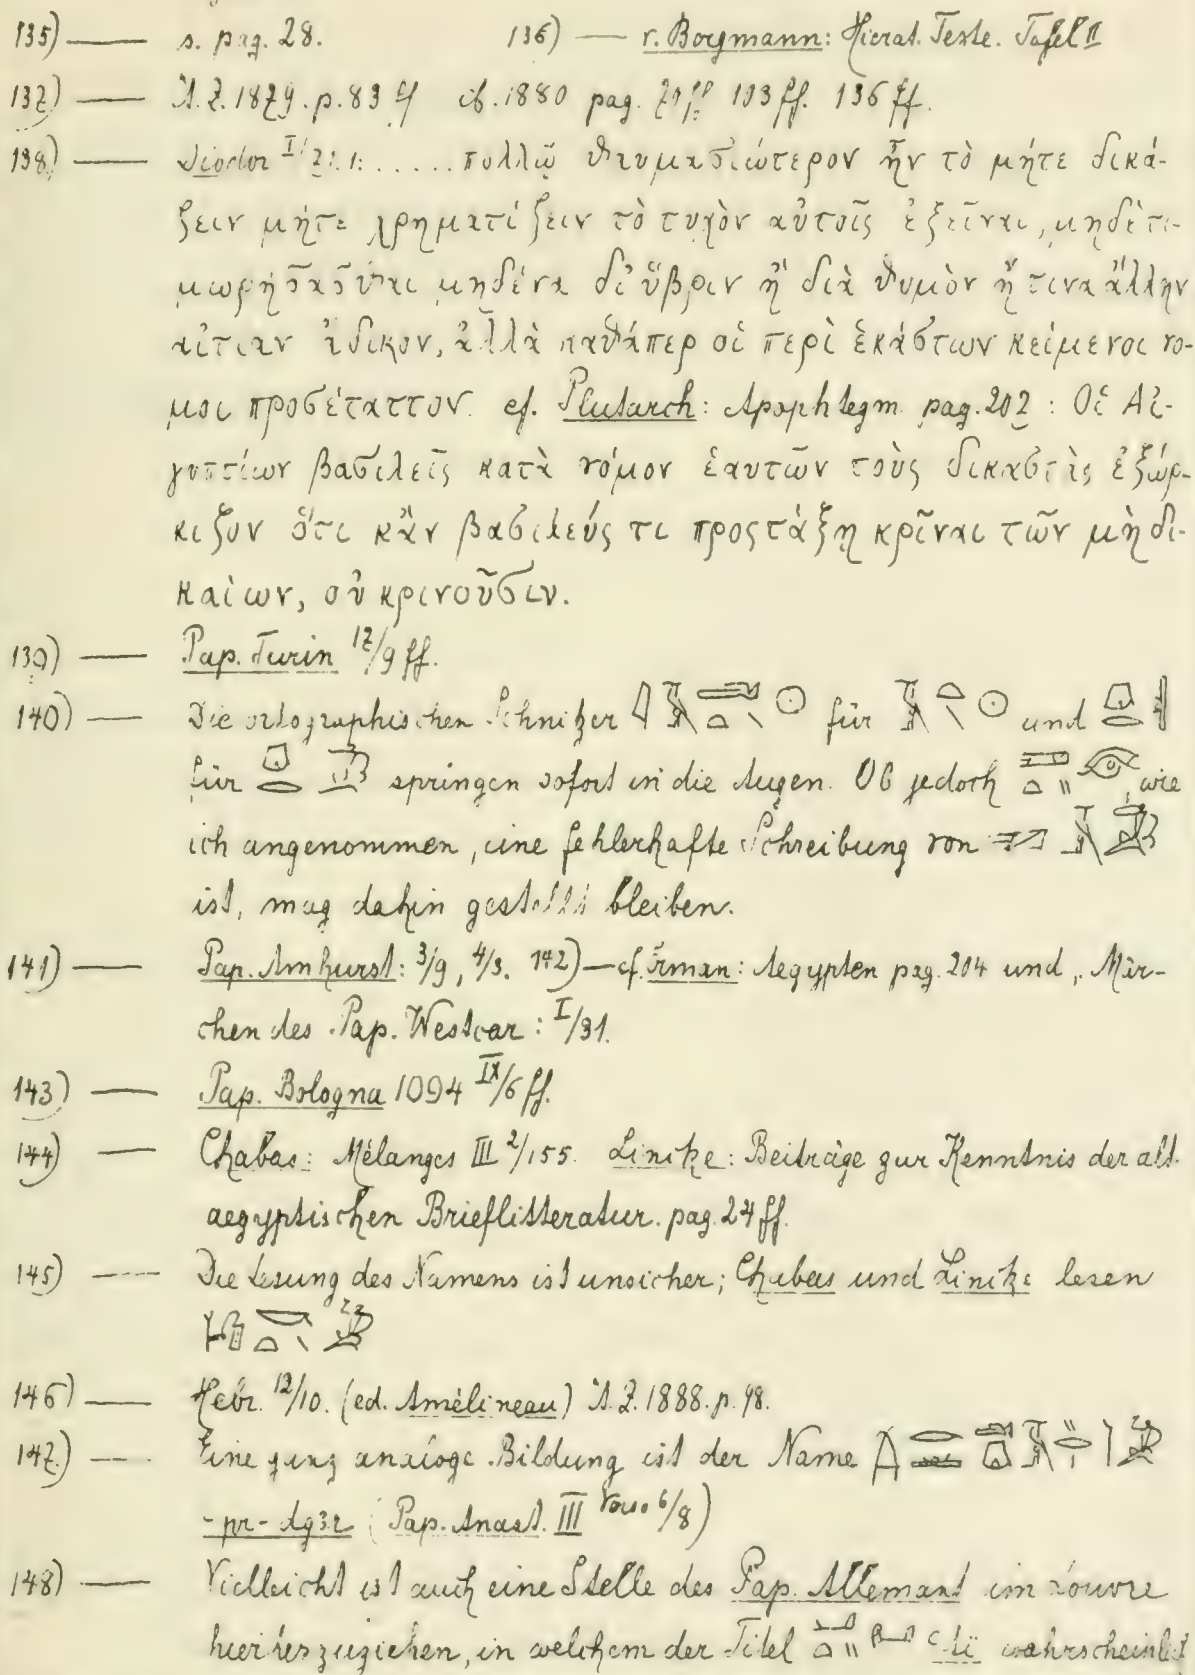 135) — s. pag. 28. 136) — v. Bergmann: Hierat. Texte. Tafel II
137) — Ä. Z. 1879. p. 83 ff ib. 1880 pag. 103 ff. 136 ff.
138) — Diodor I/71.1: ..... πολλῷ θαυμασιώτερον ἦν τὸ μήτε δικά-
ζειν μήτε χρηματίζειν τὸ τυχὸν αὐτοῖς ἐξεῖναι, μηδὲ τι-
μωρήσασθαι μηδένα δι᾽ ὕβριν ἢ διὰ θυμὸν ἤ τινα ἄλλην
αἰτίαν ἄδικον, ἀλλὰ καθάπερ οἱ περὶ ἑκάστων κείμενοι νο-
μοι προσέταττον. cf. Plutarch: Apophtegm. pag. 202: Οἱ Αἰ-
γυπτίων βασιλεῖς κατὰ νόμον ἑαυτῶν τοὺς δικαστὰς ἐξώρ-
κιζον ὅτι κἂν βασιλεύς τι προςτάξῃ κρῖναι τῶν μὴ δι-
καίων, οὐ κρινοῦσιν.
139) — Pap. Turin 17/9 ff.
140) — Die ortographischen Schnitzer für und
für springen sofort in die Augen. Ob jedoch , wie
ich angenommen, eine fehlerhafte Schreibung von
ist, mag dahin gestellt bleiben.
141) — Pap. Amhurst: 3/9, 4/3. 142) — cf. Erman: Aegypten pag. 204 und „Mär-
chen des Pap. Westcar: I/31.
143) — Pap. Bologna 1094 IX/6 ff.
144) — Chabas: Mélanges III 2/155. Lincke: Beiträge zur Kenntnis der alt.
aegyptischen Brieflitteratur. pag. 24 ff.
145) — Die Lesung des Namens ist unsicher; Chabas und Lincke lesen
146) — Hebr. 12/10. (ed. Amélineau) Ä. Z. 1888. p. 98.
147.) — Eine ganz analoge Bildung ist der Name
-pr-dg3r (Pap. Anast. III Verso 6/8)
148) — Vielleicht ist auch eine Stelle des Pap. Allemant im Louvre
hierherzuziehen, in welchem der Titel wahrscheinlich